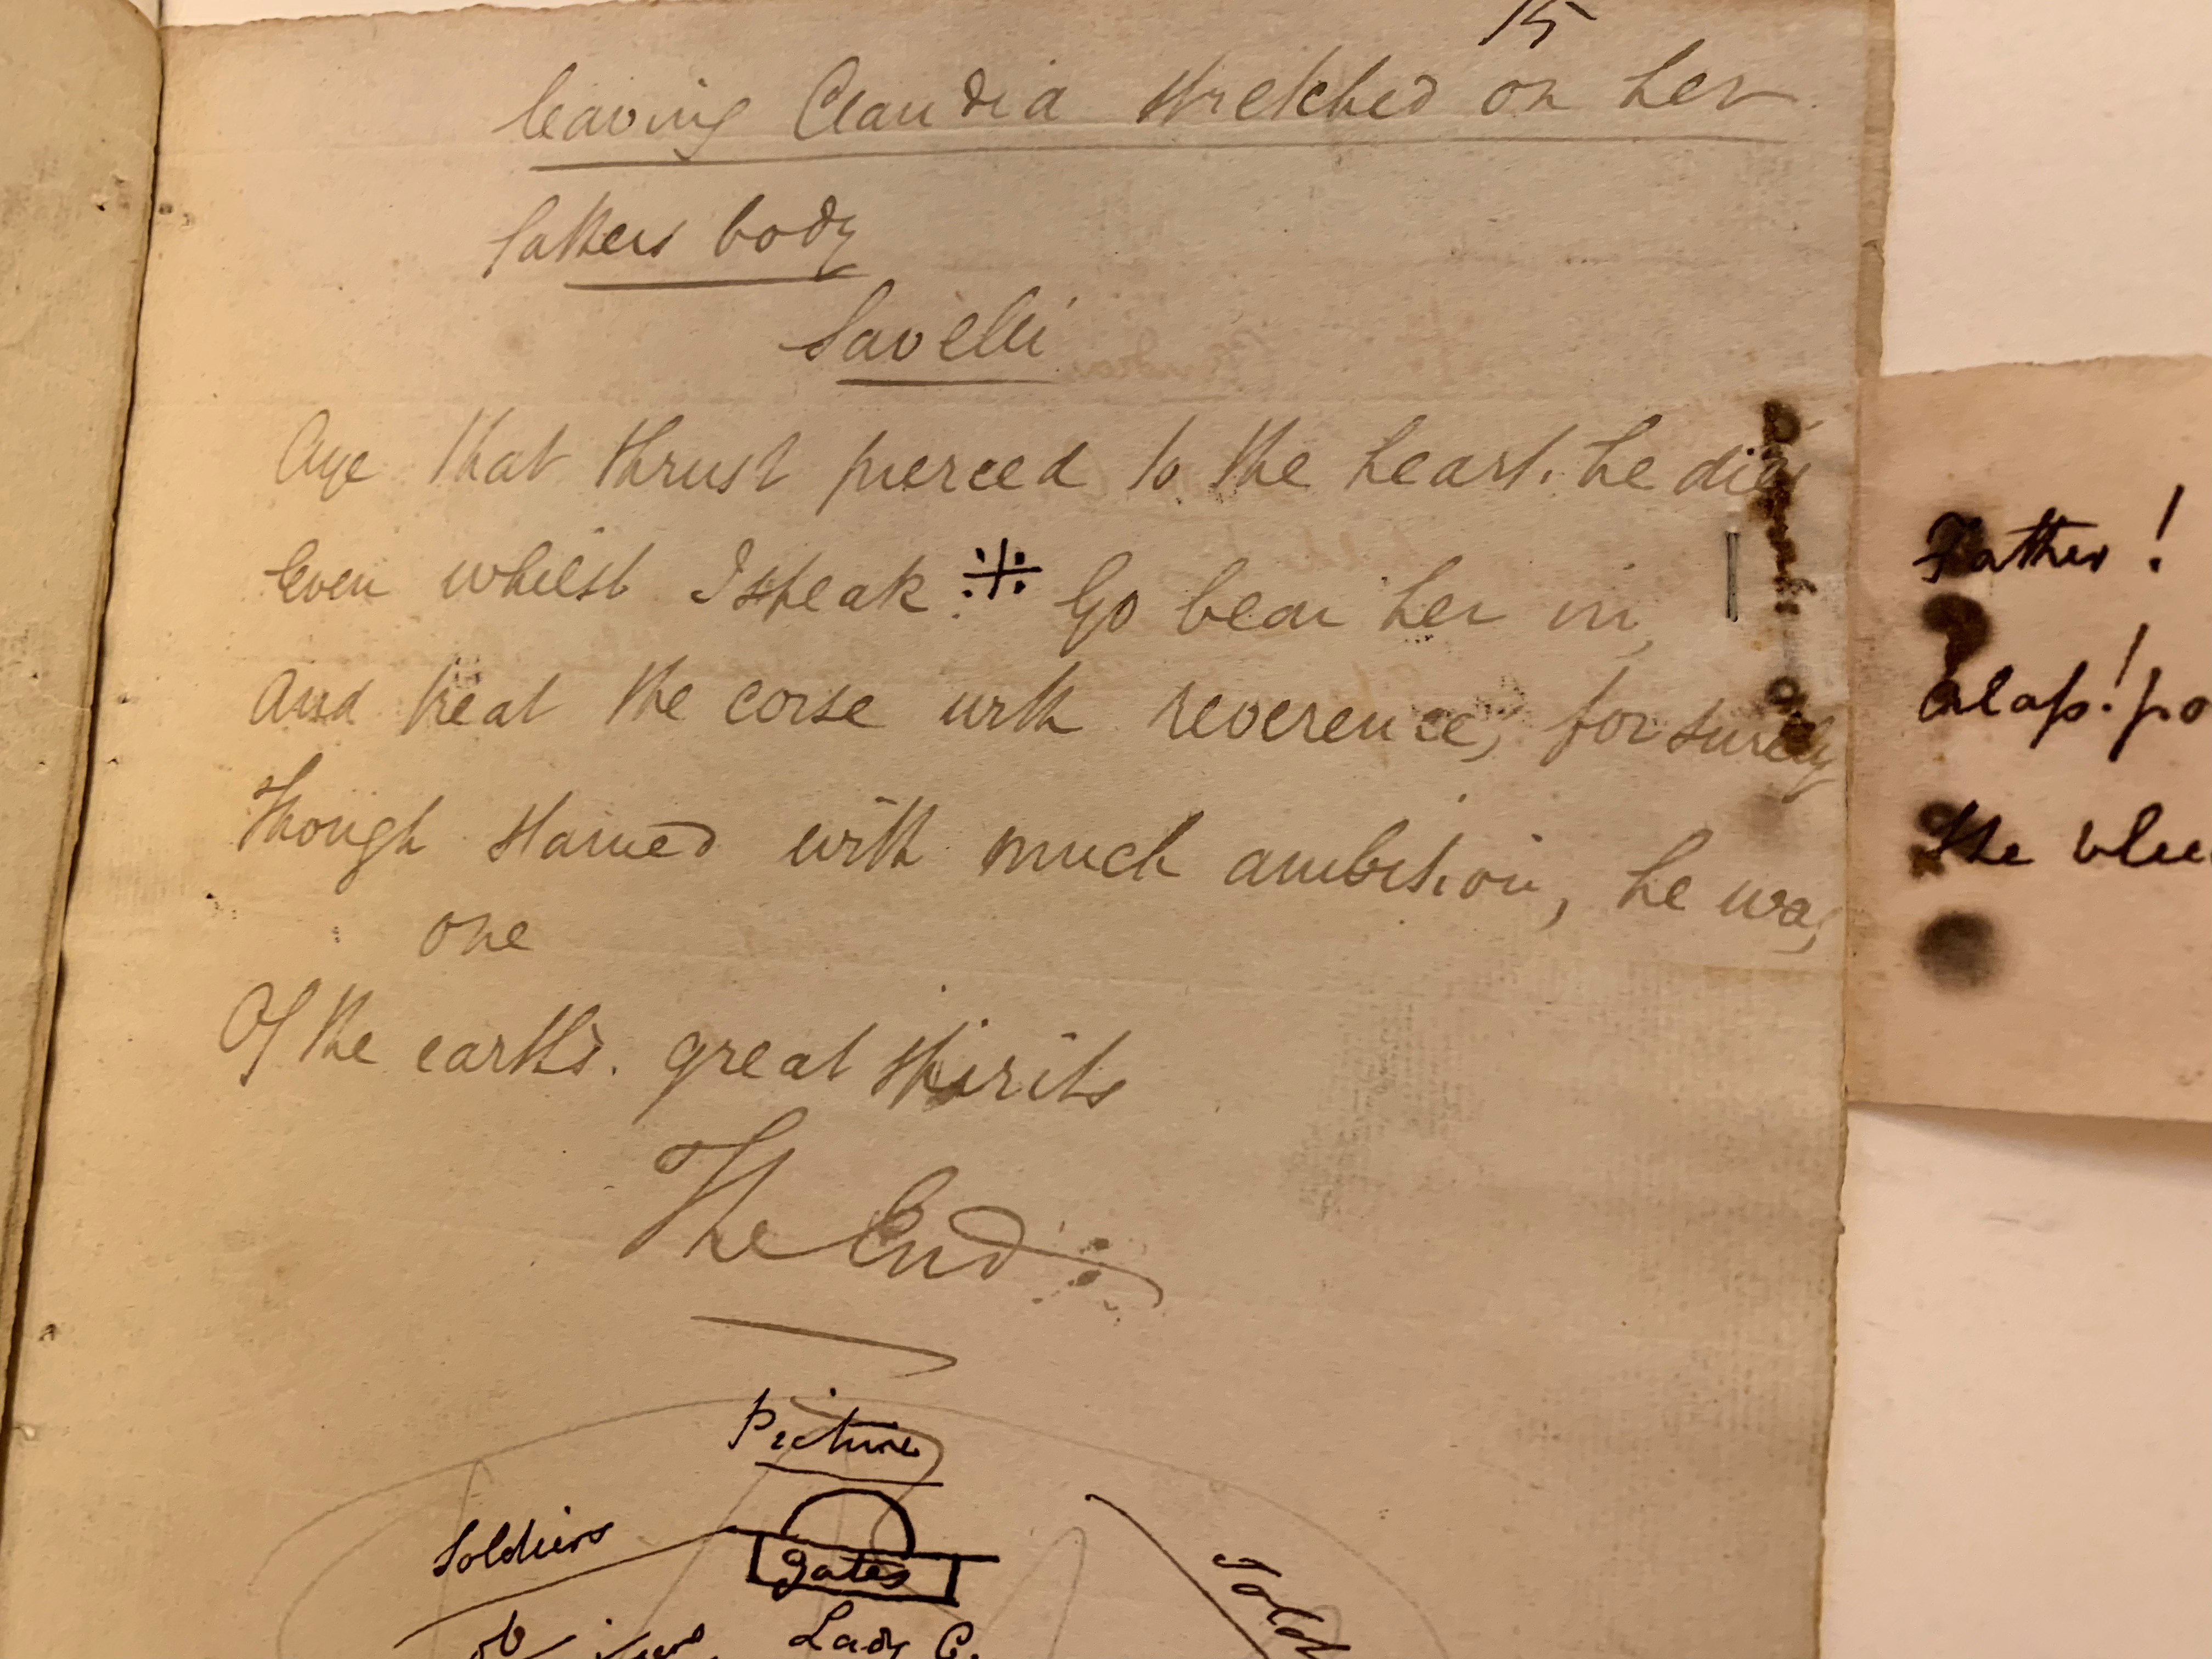 15
leaving Claudia stretched on her
fathers body
Savelli
Aye that thrust pierced to the heart. he dies
Even whilst I speak. Go bear her in,
And treat the corse with reverence, for surely
Though stained with much ambition, he was
one
Of the earth's. great spirits
The End
Picture
Soldiers
gates
Lady C.
Sold
Father!
Alass! po
The